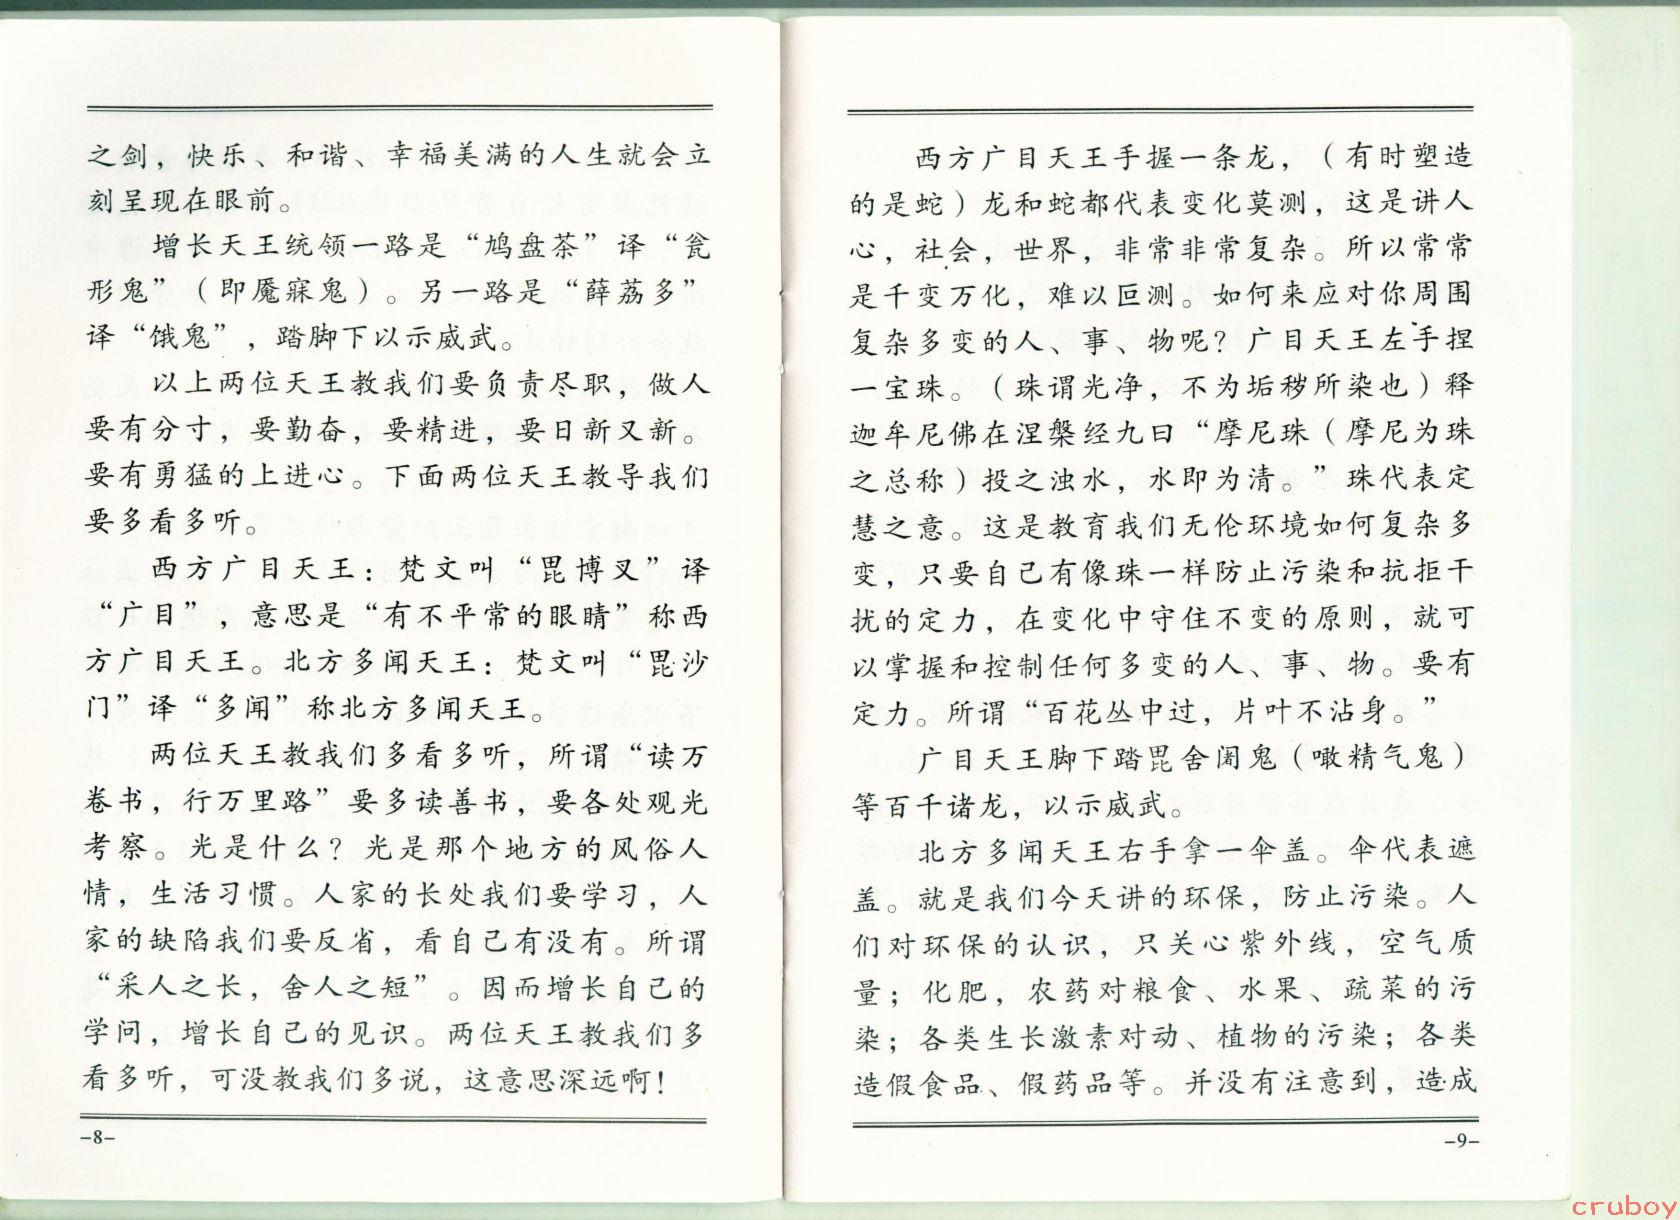 之剑，快乐、和谐、幸福美满的人生就会立
刻呈现在眼前。
增长天王统领一路是“鸠盘荼”译“瓮
形鬼”（即魇寐鬼）。另一路是“薜荔多”
译“饿鬼”，踏脚下以示威武。
以上两位天王教我们要负责尽职，做人
要有分寸，要勤奋，要精进，要日新又新。
要有勇猛的上进心。下面两位天王教导我们
要多看多听。
西方广目天王：梵文叫“毘博叉”译
“广目”，意思是“有不平常的眼睛”称西
方广目天王。北方多闻天王：梵文叫“毘沙
门”译“多闻”称北方多闻天王。
两位天王教我们多看多听，所谓“读万
卷书，行万里路”要多读善书，要各处观光
考察。光是什么？光是那个地方的风俗人
情，生活习惯。人家的长处我们要学习，人
家的缺陷我们要反省，看自己有没有。所谓
“采人之长，舍人之短”。因而增长自己的
学问，增长自己的见识。两位天王教我们多
看多听，可没教我们多说，这意思深远啊！
-8-
西方广目天王手握一条龙，（有时塑造
的是蛇）龙和蛇都代表变化莫测，这是讲人
心，社会，世界，非常非常复杂。所以常常
是千变万化，难以叵测。如何来应对你周围
复杂多变的人、事、物呢？广目天王左手捏
一宝珠。（珠谓光净，不为垢秽所染也）释
迦牟尼佛在涅槃经九曰“摩尼珠（摩尼为珠
之总称）投之浊水，水即为清。”珠代表定
慧之意。这是教育我们无伦环境如何复杂多
变，只要自己有像珠一样防止污染和抗拒干
扰的定力，在变化中守住不变的原则，就可
以掌握和控制任何多变的人、事、物。要有
定力。所谓“百花丛中过，片叶不沾身。”
广目天王脚下踏毘舍阇鬼（噉精气鬼）
等百千诸龙，以示威武。
北方多闻天王右手拿一伞盖。伞代表遮
盖。就是我们今天讲的环保，防止污染。人
们对环保的认识，只关心紫外线，空气质
量；化肥，农药对粮食、水果、蔬菜的污
染；各类生长激素对动、植物的污染；各类
造假食品、假药品等。并没有注意到，造成
-9-
cruboy